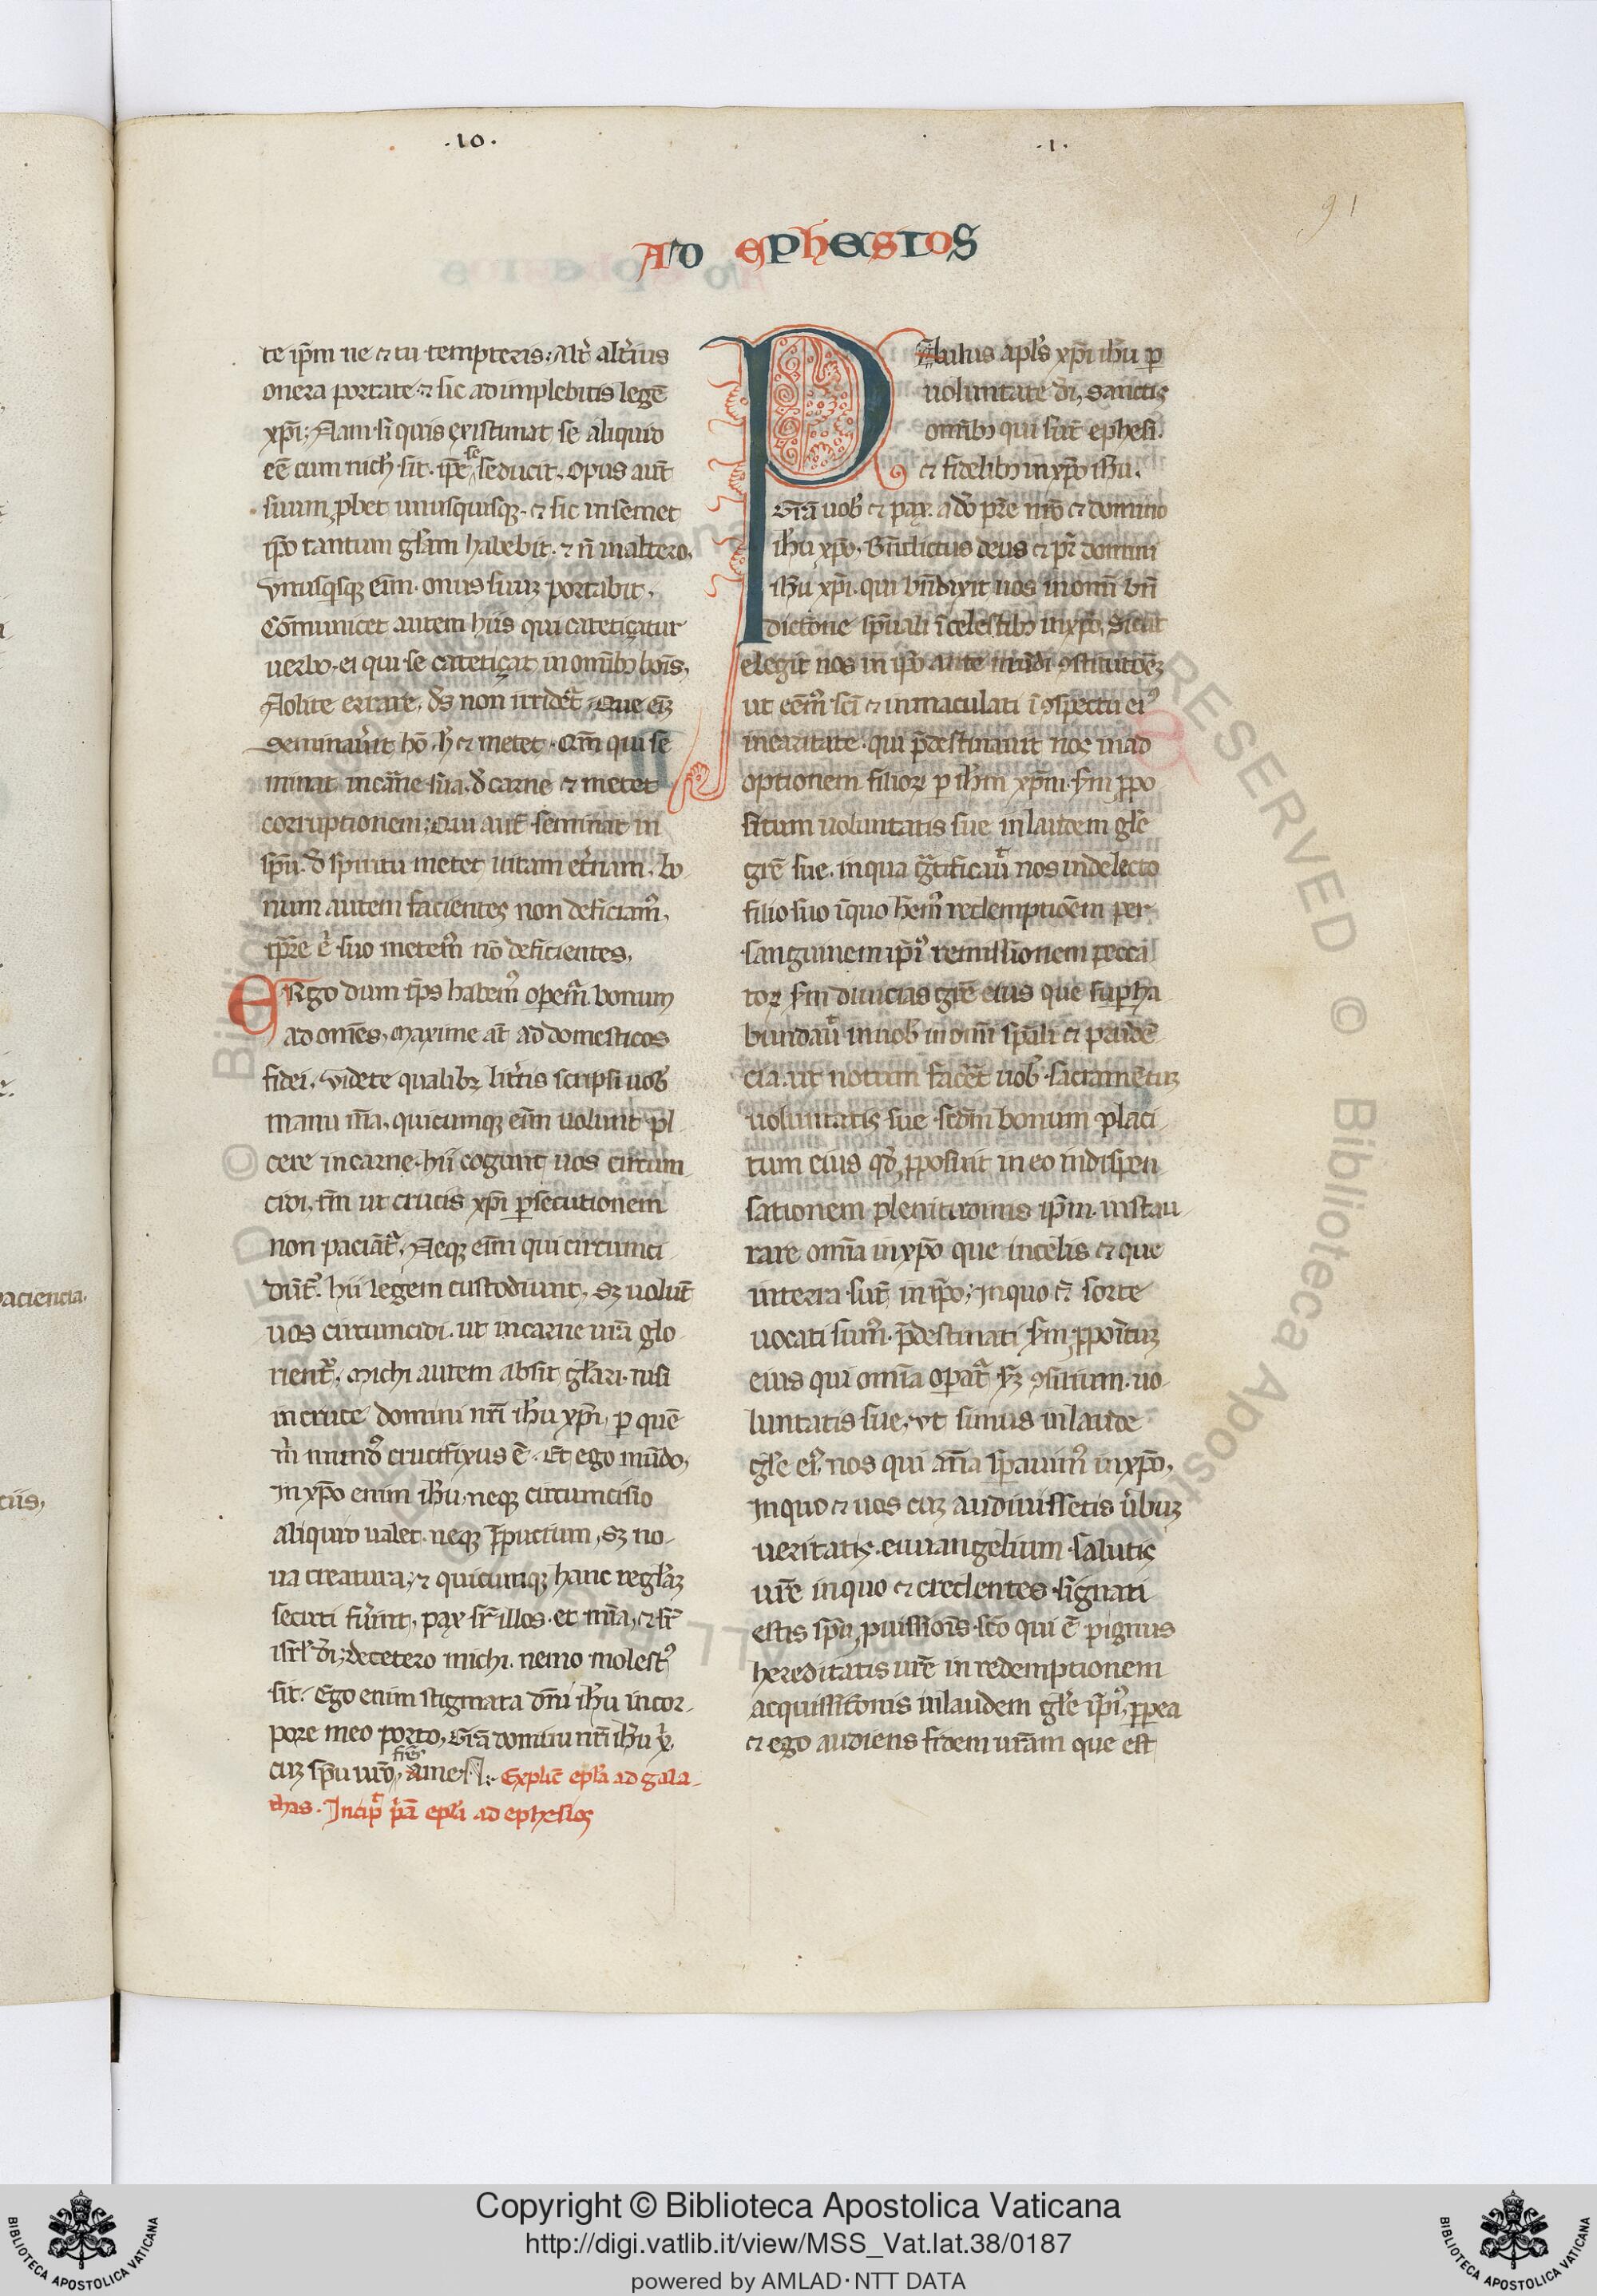 .10.
.1.
91
Ad ephesios
te ip̄m ne ⁊ tu tempteris. Alt̾ alt̾ius
onera portate ⁊ sic adimplebitis legē
xp̄i. Nam si quis existimat se aliquid
eē cum nich̾ sit. ip̄e se seducit. Opus aut̄
suum ꝓbet unusquisqꝫ. ⁊ sic in semet
ip̄o tantum gl̄am habebit. ⁊ n̄ in altero.
Vnusqsqꝫ eīm. onus suuꝫ portabit.
Cōmunicet autem hiis qui catetiçatur
uerbo. ei qui se catetiçat in omībꝫ bōis.
Nolite errare. ds̄ non irridet̾. Que eīꝫ
seminau̾it hō. h̾ ⁊ metet. Qm̄ qui se
minat in carne sua. d̾ carne ⁊ metet
corruptionem. Qui aut̄ seminat in
sp̄u. d̾ spiritu metet uitam et̾nam. bo
num autem facientes non deficiam̾.
tp̄re .n. suo metem̾ nō deficientes.
Ergo dum tp̄s habem̾ operem̾ bonum
ad omēs. Maxime at̄ ad domesticos
fidei. Videte qualibꝫ litt̾is scripsi uob̾
manu m̄a. quicumqꝫ eīm uolunt pl
cere in carne. hii cogunt uos circum
cidi. tm̄ ut crucis xp̄i ꝑsecutionem
non paciāt̾. Neqꝫ eīm qui circumci
dūt̾. hii legem custodiunt. Sꝫ uolūt
uos circumcidi. ut in carne ur̄a glo
rient̾. Michi autem absit gl̄ari. nisi
in cruce domini nr̄i ih̄u xp̄i. ꝑ quē
m̾ mund̾ crucifixus ē. Et ego mūdo.
In xp̄o enim ih̄u. neqꝫ circumcisio
aliquid ualet. neqꝫ p̄putium. Sꝫ no
ua creatura. ⁊ quicumqꝫ hanc regl̄aꝫ
secuti fu̾int. pax sr̄ illos. et mīa. ⁊ sr̄
isrl̄ d̄i. de cetero michi. nemo molest̾
sit. Ego enim stigmata dn̄i ih̄u in cor
pore meo porto. Gr̄a domini nr̄i ih̄u x̾.
cuꝫ sp̄u ur̄o. fr̄es ameN. Explic̄ epl̄a ad gala
thas. Incip̄ p̄a epl̄a ad ephesios
Paulus apl̄s xp̄i ih̄u ꝑ
uoluntate d̄i. sanctis
omībꝫ qui sūt ephesi.
⁊ fidelibꝫ in xp̄o ih̄u.
Gr̄a uob̾ ⁊ pax. a dō pr̄e nr̄o ⁊ domino
ih̄u xp̄o. Bn̄dictus deus ⁊ pr̄ domini
ih̄u xp̄i. qui bn̄dixit nos in omī bn̄
dictōne sp̄uali ī celestibꝫ in xp̄o. Sicut
elegit nos in ip̄o ante mūdi ꝯstitutōeꝫ
ut eēm̾ sc̄i ⁊ inmaculati ī ꝯspectu ei̾
in caritate. qui p̄destinauit nos in ad
optionem filioꝝ ꝑ ih̄m xp̄m. sm̄ ꝓpo
situm uoluntatis sue in laudem gl̄e
gr̄e sue. in qua gratificauit nos in delecto
filio suo ī quo hēm̾ redemptiōem per
sanguinem ip̄i̾ remissionem pecca
toꝝ sm̄ diuicias gr̄e eius que suꝑha
bundauit in uob̾ in omī sp̄ali ⁊ prudē
cia. ut notum facet̾ uob̾. sacramētuꝫ
uoluntatis sue scdm̄ bonum placi
tum eius qd̾ ꝓposuit in eo in dispen
sationem plenitudinis ip̄m. instau
rare omīa in xp̄o que in celis ⁊ que
in terra sūt in ip̄o. In quo ⁊ sorte
uocati sum̾. p̄destinati sm̄ ꝓpoītuꝫ
eius qui omīa oꝑat̾ sꝫ ꝯsilium. uo
luntatis sue. Vt simus in laude
gl̄e ei̾. nos qui an̄a sꝑauim̾ in xp̄o.
In quo ⁊ uos cuꝫ audiuissetis u̾buꝫ
ueritatis. euuangelium salutis
ur̄e in quo ⁊ credentes signati
estis sp̄u ꝓmissiōis. sc̄o qui ē pignus
hereditatis ur̄e in redemptionem
acquissitōnis in laudem gl̄e ip̄i̾. ꝓpea
⁊ ego audiens fidem ur̄am que est
aciencia.
ciis,
Copyright © Biblioteca Apostolica Vaticana
http://digi.vatlib.it/view/MSS_Vat.lat.38/0187
powered by AMLAD·NTT DATA
BIBLIOTECA APOSTOLICA VATICANA
BIBLIOTECA APOSTOLICA VATICANA